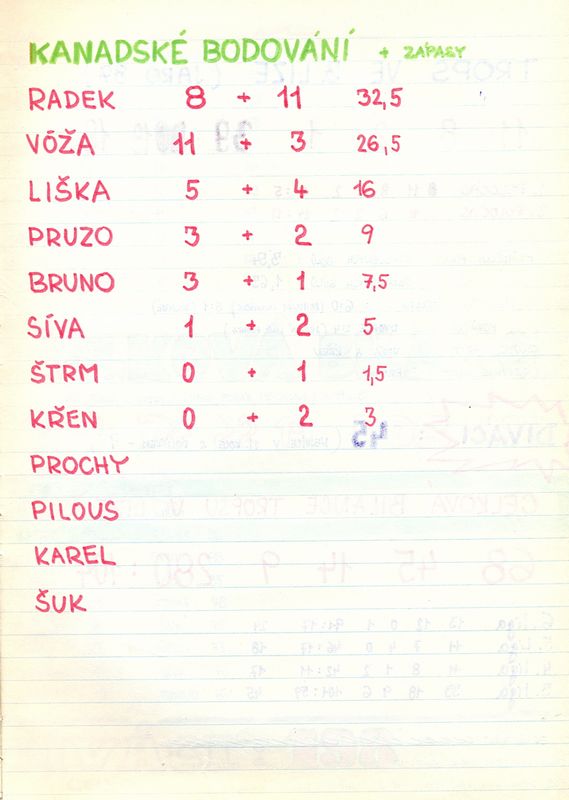 KANADSKÉ BODOVÁNÍ + ZÁPASY
RADEK 8 + 11 32,5
VÓŽA 11 + 3 26,5
LIŠKA 5 + 4 16
PRUZO 3 + 2 9
BRUNO 3 + 1 7,5
SÍVA 1 + 2 5
ŠTRM 0 + 1 1,5
KŘEN 0 + 2 3
PROCHY
PILOUS
KAREL
ŠUK